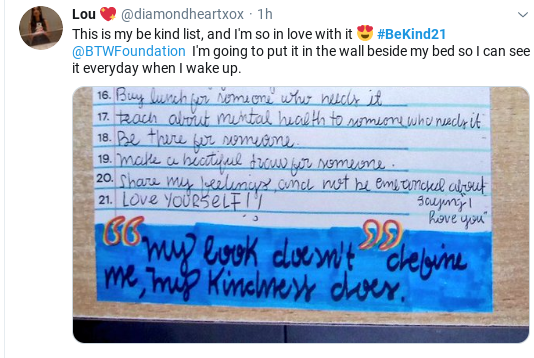 Lou @diamondheartxox · 1h
This is my be kind list, and I'm so in love with it #BeKind21
@BTWFoundation I'm going to put it in the wall beside my bed so I can see
it everyday when I wake up.
16. Buy lunch for someone who needs it
17. teach about mental health to someone who needs it
18. Be there for someone.
19. make a beatiful for someone.
20. Share my feelings, and not be about
saying I
21. LOVE YOURSELF!!
love you"
"my look doesn't" define
me, my Kindness does.